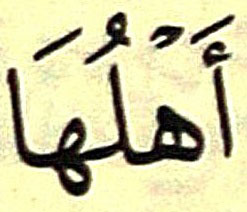 أَهْلُهَا